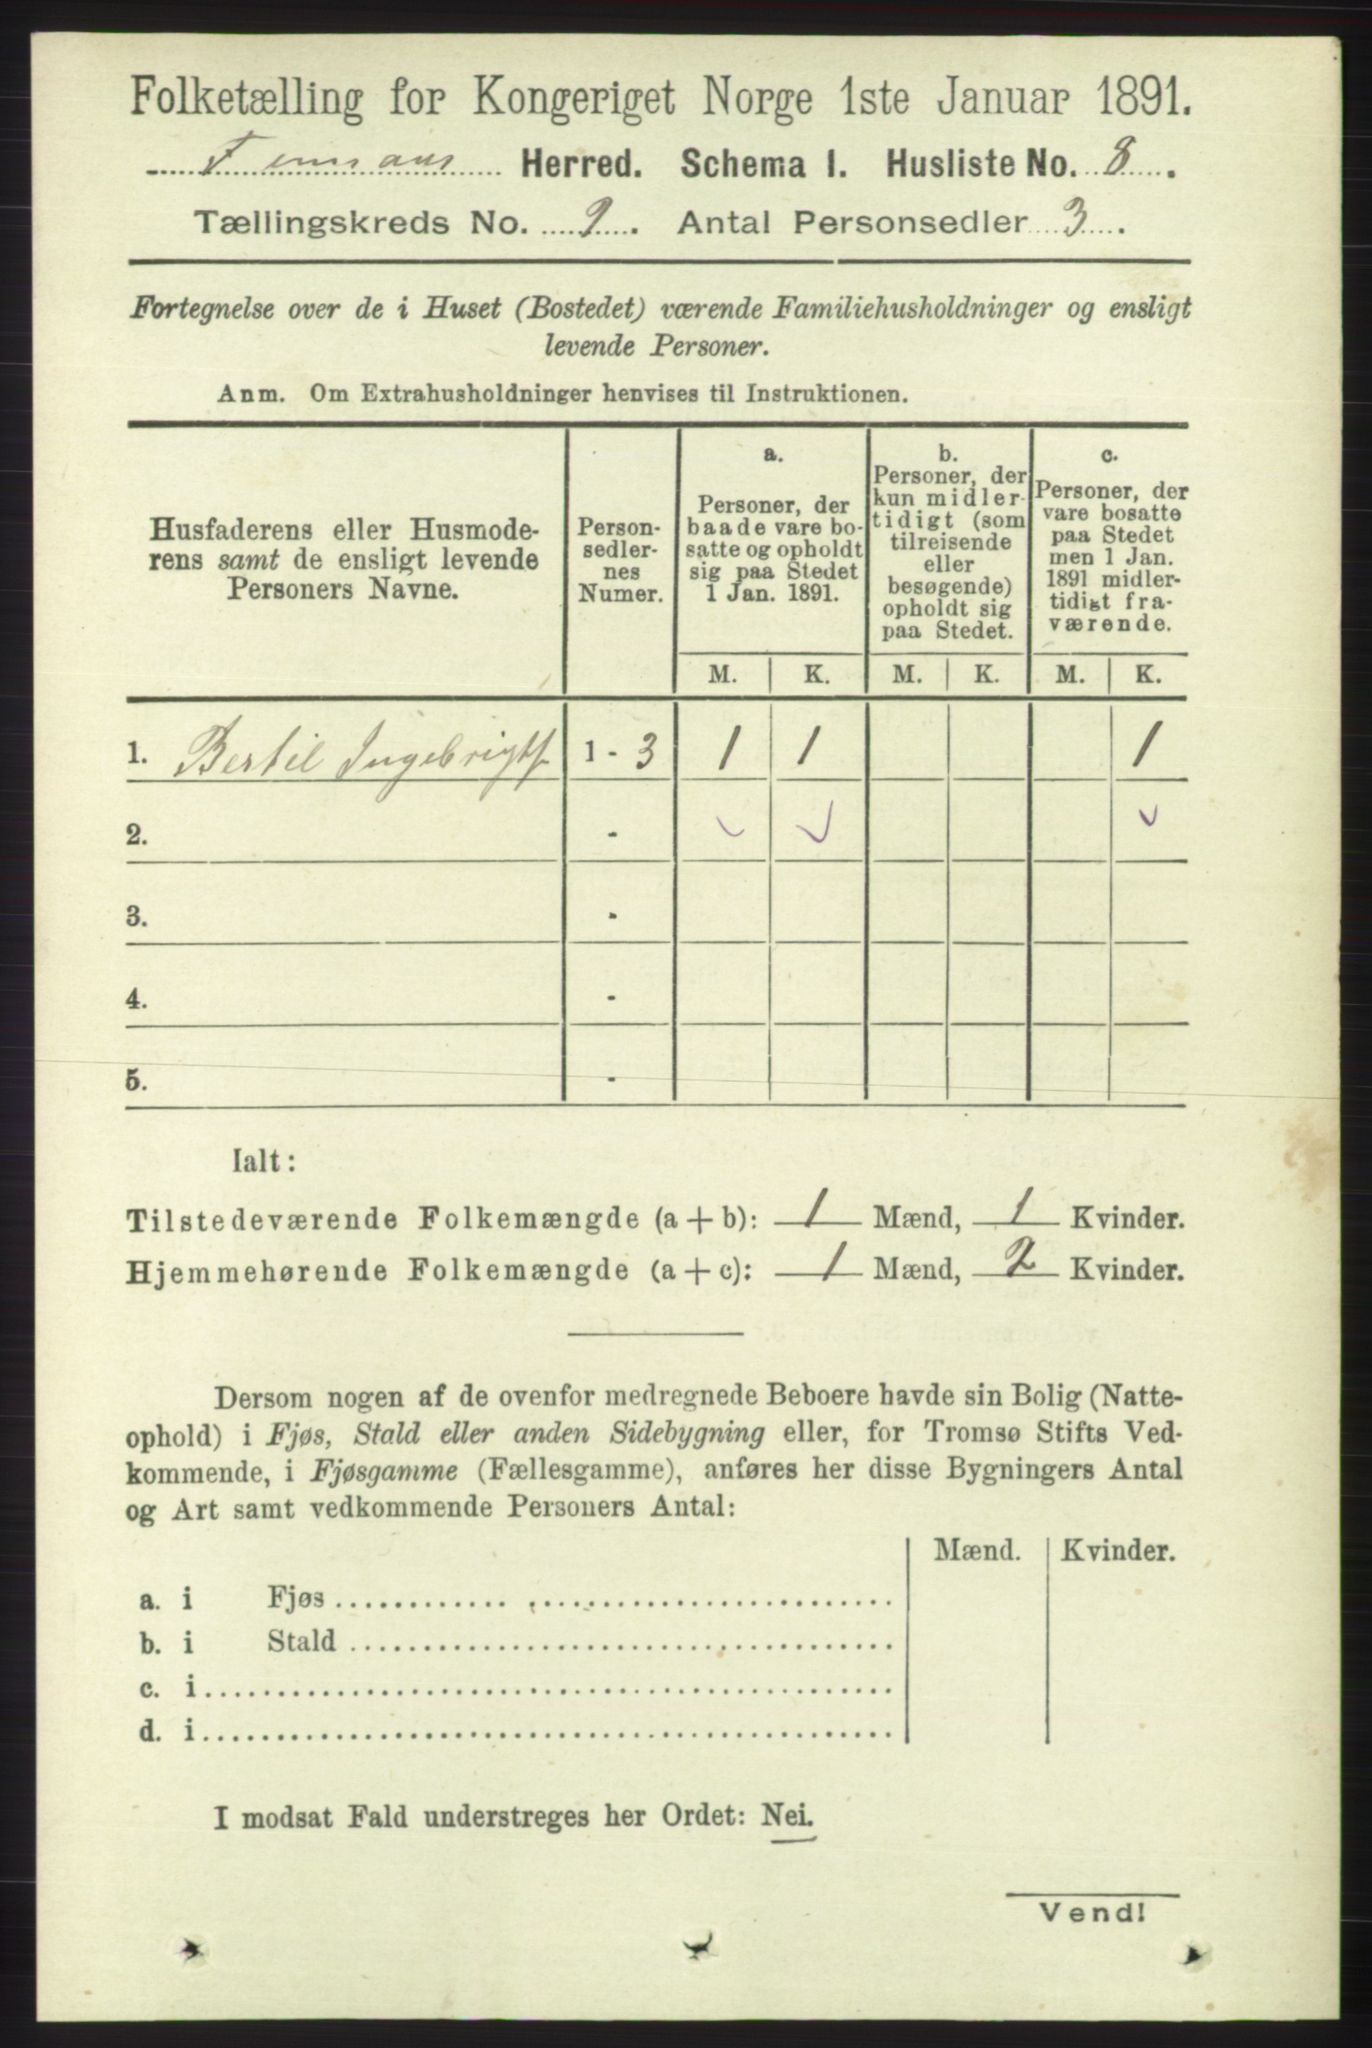 Folketælling for Kongeriget Norge 1ste Januar 1891.
Herred. Schema I. Husliste No. 8.
Tællingskreds No. 9. Antal Personsedler 3.
Fortegnelse over de i Huset (Bostedet) værende Familiehusholdninger og ensligt
levende Personer.
Anm. Om Extrahusholdninger henvises til Instruktionen.
Husfaderens eller Husmode-
rens samt de ensligt levende
Personers Navne.
Person-
sedler-
nes
Numer.
a.
Personer, der
baade vare bo-
satte og opholdt
sig paa Stedet
1 Jan. 1891.
b.
Personer, der
kun midler-
tidigt (som
tilreisende
eller
besøgende)
opholdt sig
paa Stedet.
c.
Personer, der
vare bosatte
paa Stedet
men 1 Jan.
1891 midler-
tidigt fra-
værende.
M. K. M. K. M. K.
1. Bertil Ingebrigts. 1 - 3 1 1 1
2. -
3. -
4. -
5. -
Ialt:
Tilstedeværende Folkemængde (a + b): 1 Mænd, 1 Kvinder.
Hjemmehørende Folkemængde (a + c): 1 Mænd, 2 Kvinder.
Dersom nogen af de ovenfor medregnede Beboere havde sin Bolig (Natte-
ophold) i Fjøs, Stald eller anden Sidebygning eller, for Tromsø Stifts Ved-
kommende, i Fjøsgamme (Fællesgamme), anføres her disse Bygningers Antal
og Art samt vedkommende Personers Antal:
Mænd. Kvinder.
a. i Fjøs
b. i Stald
c. i
d. i
I modsat Fald understreges her Ordet: Nei.
Vend!